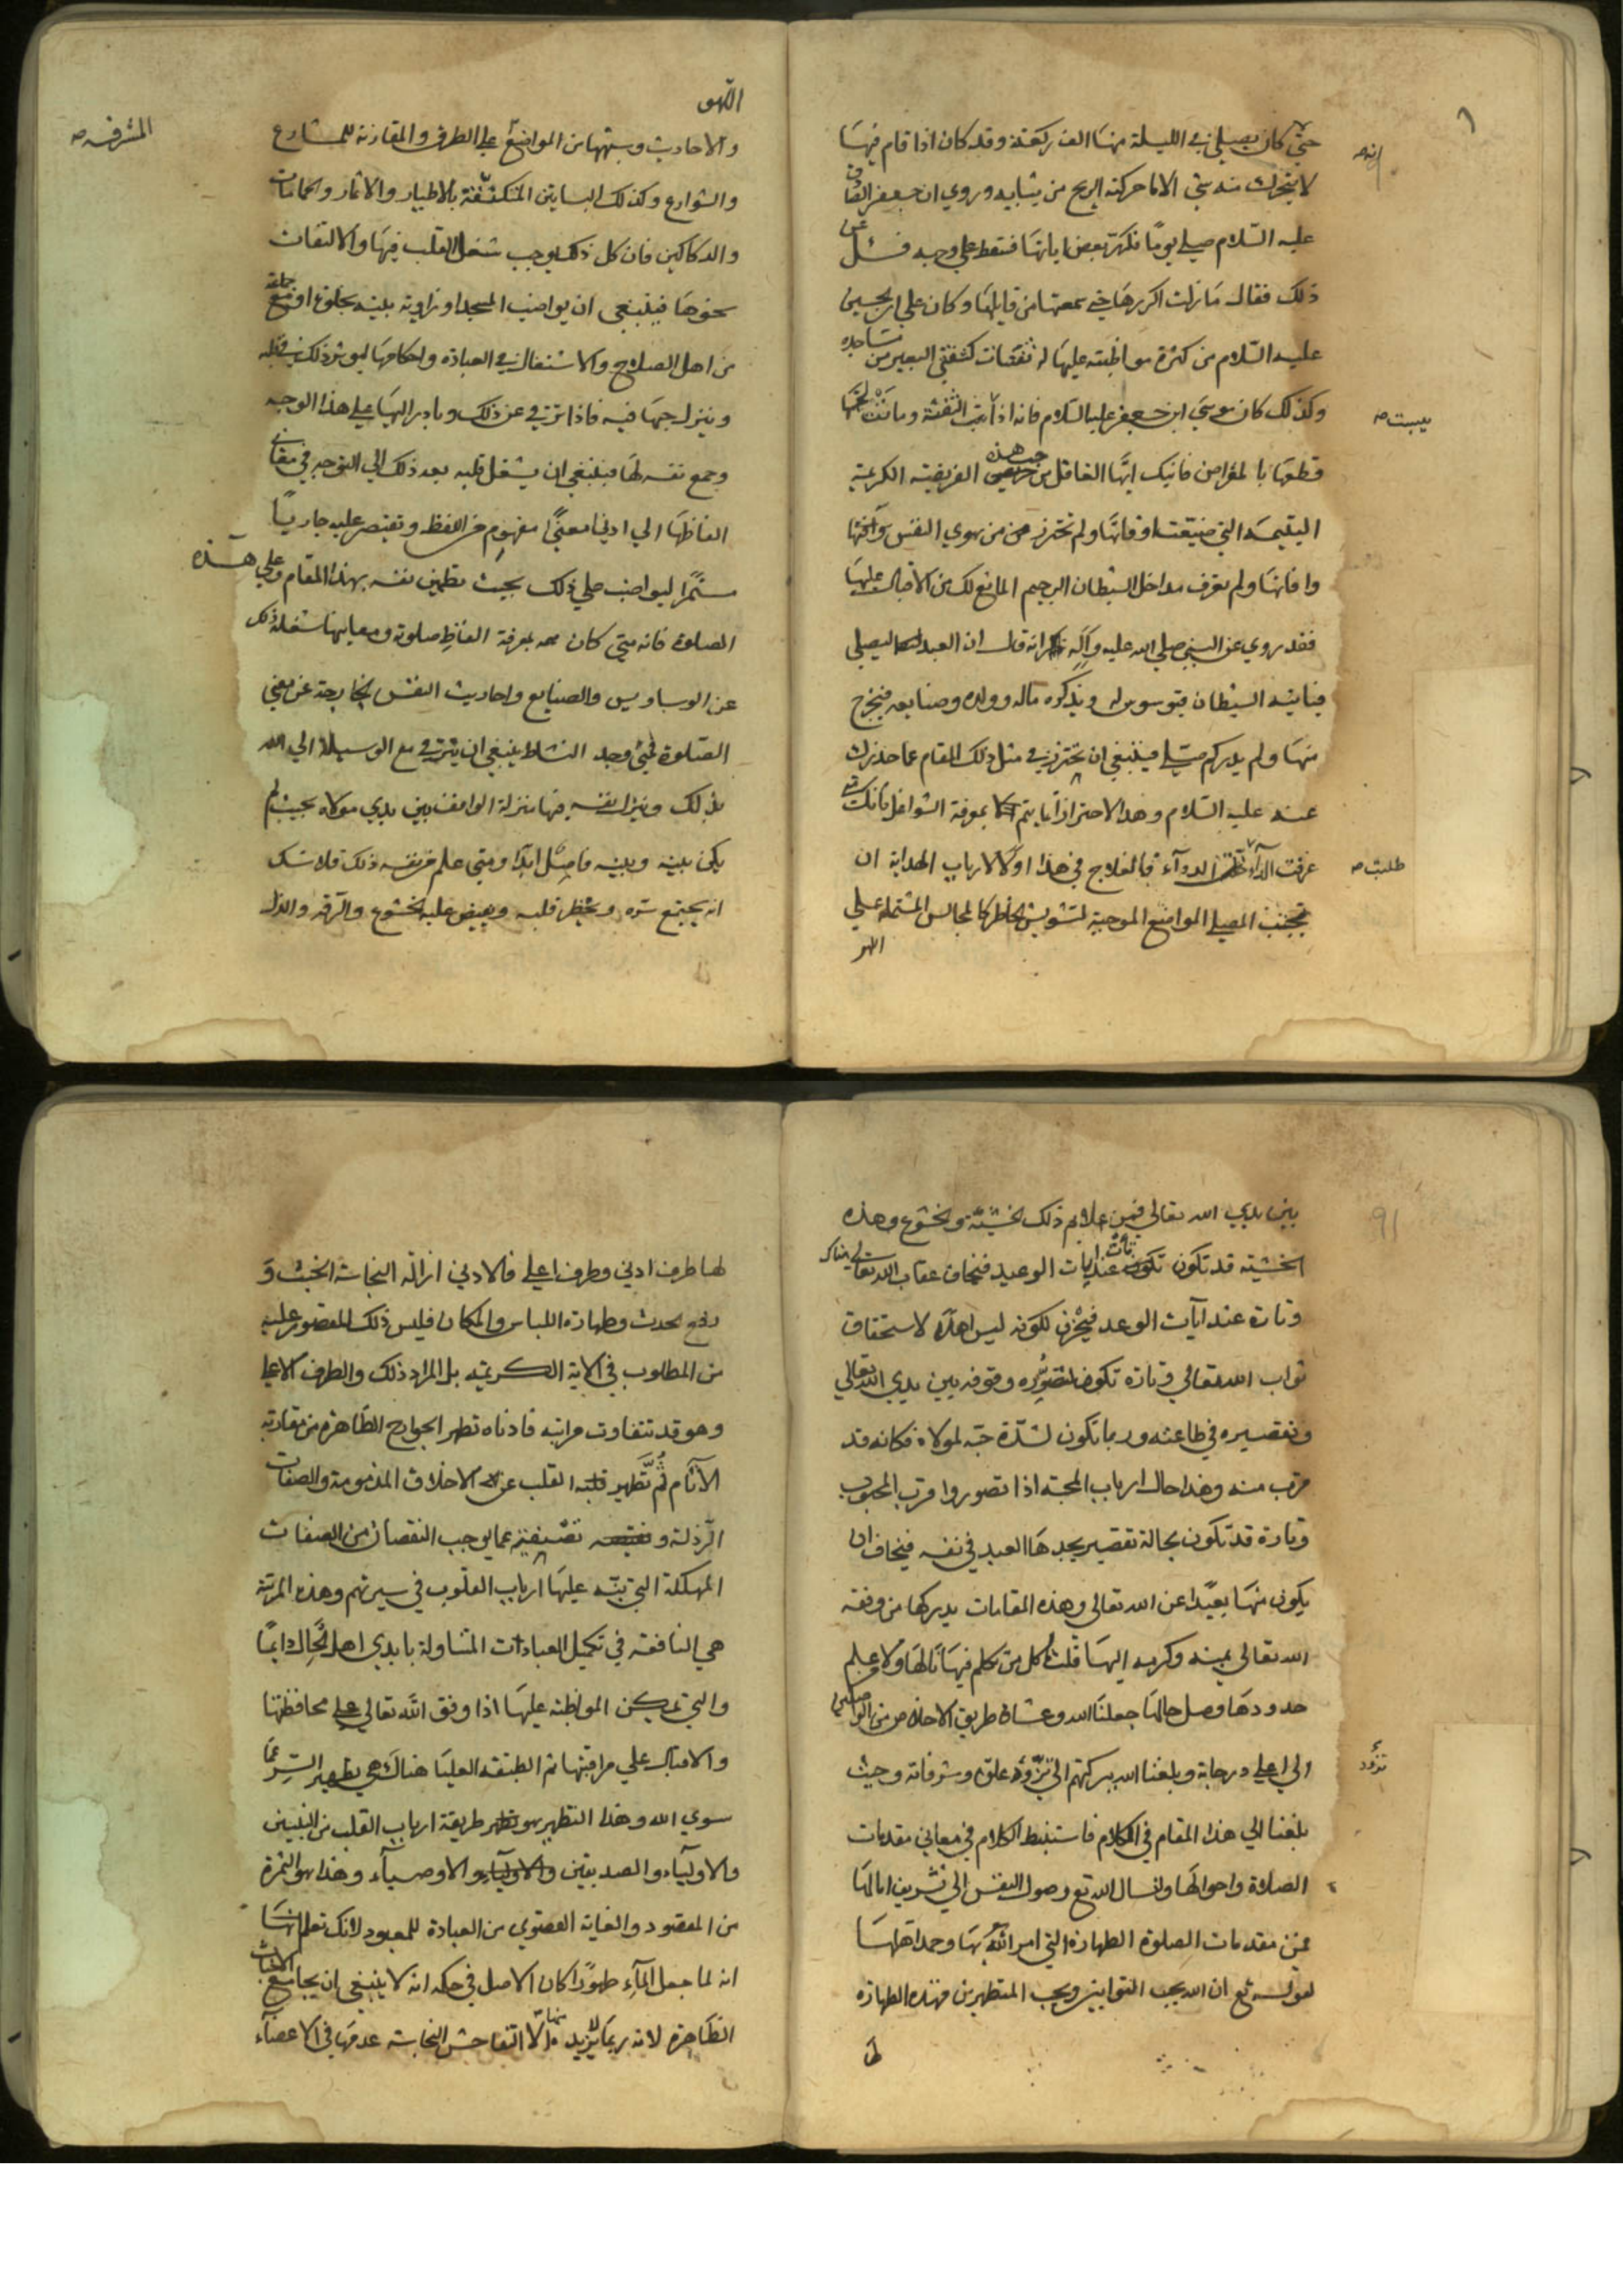 حتى كان يصلي في الليلة منها الف ركعة وقد كان اذا قام فيها
لا يتحرك منه شي الا ما حركته الريح من ثيابه وروي ان جعفر الصادق
عليه السلام صلى يوما فكرر بعض اياتها فسقط على وجهه فسئل عن
ذلك فقال ما زلت اكررها حتى سمعتها من قايلها وكان علي ابن الحسين
عليه السلام من كثرة مواظبته عليها له ثفنات كثفنتي البعير من مساجده
وكذلك كان موسى ابن جعفر عليه السلام فانه اذا الثفنة وما تحتها
يبست صه
قطعها بالمقراض فانيك ايها الغافل من هذه الفريضة الكريمة
اليتيمة التي ضيعت اوقاتها ولم تحترز من هوي النفس وآفتها
وافاتها ولم تعرف مداخل الشيطان الرجيم المانع لك من الاقبال عليها
فقد روي عن النبي صلي الله عليه وآله انه قال ان العبد ليصلي
فياتيه الشيطان فيوسوس له ويذكره ماله وولده وصنايعه فيخرج
منها ولم يدر كم صلى فينبغي ان تحترز في مثل ذلك المقام عما حذرك
عنه عليه السلام وهذا الاحتراز انما يتم بمعرفة الشواغل فانك متى
عرفت الداء الدواء فالعلاج في هذا اولا لارباب الهداية ان
طلبت صه
تجنب المصلي المواضع الموجبة لتشويش الخاطر كالمجالس المشتملة على
اللهو
اللهو
والاحاديث وشبهها من المواضع على الطرق والمقارنة للمشارع
المشرفة صه
والشوارع وكذلك البساتين المتكنفة بالاطيار والاثمار والحمامات
والدكاكين فان كل ذلك يوجب شغل القلب فيها والالتفات
نحوها فينبغي ان يواضب المسجد او زاوية بيته بخلوة او مع جماعة
من اهل الصلاح والاشتغال في العبادة واحكامها ليوثر ذلك في قلبه
وينزل حبها فيه فاذا ترقى عن ذلك وبادر اليها على هذا الوجه
وجمع نفسه لها فينبغي ان يشغل قلبه بعد ذلك الي التوجه في معاني
الفاظها الي ادنى معنى مفهوم من اللفظ ويقتصر عليه جاريا
مستمرا ليواضب على ذلك بحيث تطمئن نفسه بهذا المقام وعلى هذه
الصلوة فانه متى كان معه بمعرفة الفاظ صلوته ومعانيها شغله ذلك
عن الوساويس والصنايع واحاديث النفس الخارجة عن معنى
الصلوة فمتى وجد النشاط ينبغي ان يترقى مع الوسيلة الي الله
بذلك وينزل نفسه فيها منزلة الواقف بين يدي مولاه بحيث لم
يكن بينه وبينه فاصل ابدا ومتى علم من نفسه ذلك فلا شك
انه يجتمع سره ويحظر قلبه ويفيض عليه الخشوع والرقة والذل
بين يدي الله تعالى فمن علايم ذلك الخشية والخشوع وهذه
الخشية قد تكون تارة عند ايات الوعيد فيخاف عقاب الله تعالى هناك
وتارة عند ايات الوعد فيحزن لكونه ليس اهلا لاستحقاق
ثواب الله تعالى وتارة تكون لتصوره وقوفه بين يدي الله تعالى
وتقصيره في طاعته وربما تكون لشدة حبه لمولاه فكانه قد
قرب منه وهذا حال ارباب المحبة اذا تصوروا قرب المحبوب
وتارة قد تكون بحالة تقصير يجدها العبد في نفسه فيخاف ان
يكون منها بعيدا عن الله تعالى وهذه المقامات يدركها من وفقه
الله تعالى بمنه وكرمه اليها قلت كل من تكلم فيها نالها ولا علم
حدودها وصل حالها جعلنا الله وعشاة طريق الاخلاص من الواصلين
الي اعلى درجاته وبلغنا الله ببركتهم الي علوه وشرفاته وحيث
بلغنا الي هذا المقام في الكلام فاستنبط الكلام في معاني مقدمات
الصلاة واحوالها ولنسال الله تع وصول النفس الي تشريف امالها
فمن مقدمات الصلوة الطهارة التي امر الله بها وحمد اهلها
لقوله تع ان الله يحب التوابين ويحب المتطهرين فهذه الطهارة
لها
لها طرف ادنى وطرف اعلى فالادنى ازالة النجاسة الخبث و
دفع الحدث وطهارة اللباس والمكان فليس ذلك المقصور عليه
من المطلوب في الاية الكريمة بل المراد ذلك والطرف الاعلى
وهو قد تتفاوت مراتبه فادناه تطهر الجوارح الظاهرة من مقارنة
الآثام ثم تطهير القلب عن الاخلاق المذمومة والصفات
الرذلة و تصفيته عما يوجب النقصان من الصفات
المهلكة التي نبه عليها ارباب القلوب في سيرتهم وهذه المرتبة
هي النافعة في تكميل العبادات المتداولة بايدي اهل الحال دايما
والتي تمكين المواظبة عليها اذا وفق الله تعالى على محافظتها
والاقبال على مراقبتها ثم الطبقة العليا هناك هي تطهير السر عما
سوي الله وهذا التطهير هو طريقة ارباب القلب من النبيين
والاولياء والصديقين والاوصياء وهذا هو الثمرة
من المقصود والغاية القصوي من العبادة للمعبود لانك تعلم
انه لما جعل الماء طهورا كان الاصل في حكمه انه لا ينبغي ان يجامع الاخباث
الظاهرة لانه ربما لا يزيد الا التفاحش النجاسة عدمها في الاعضاء